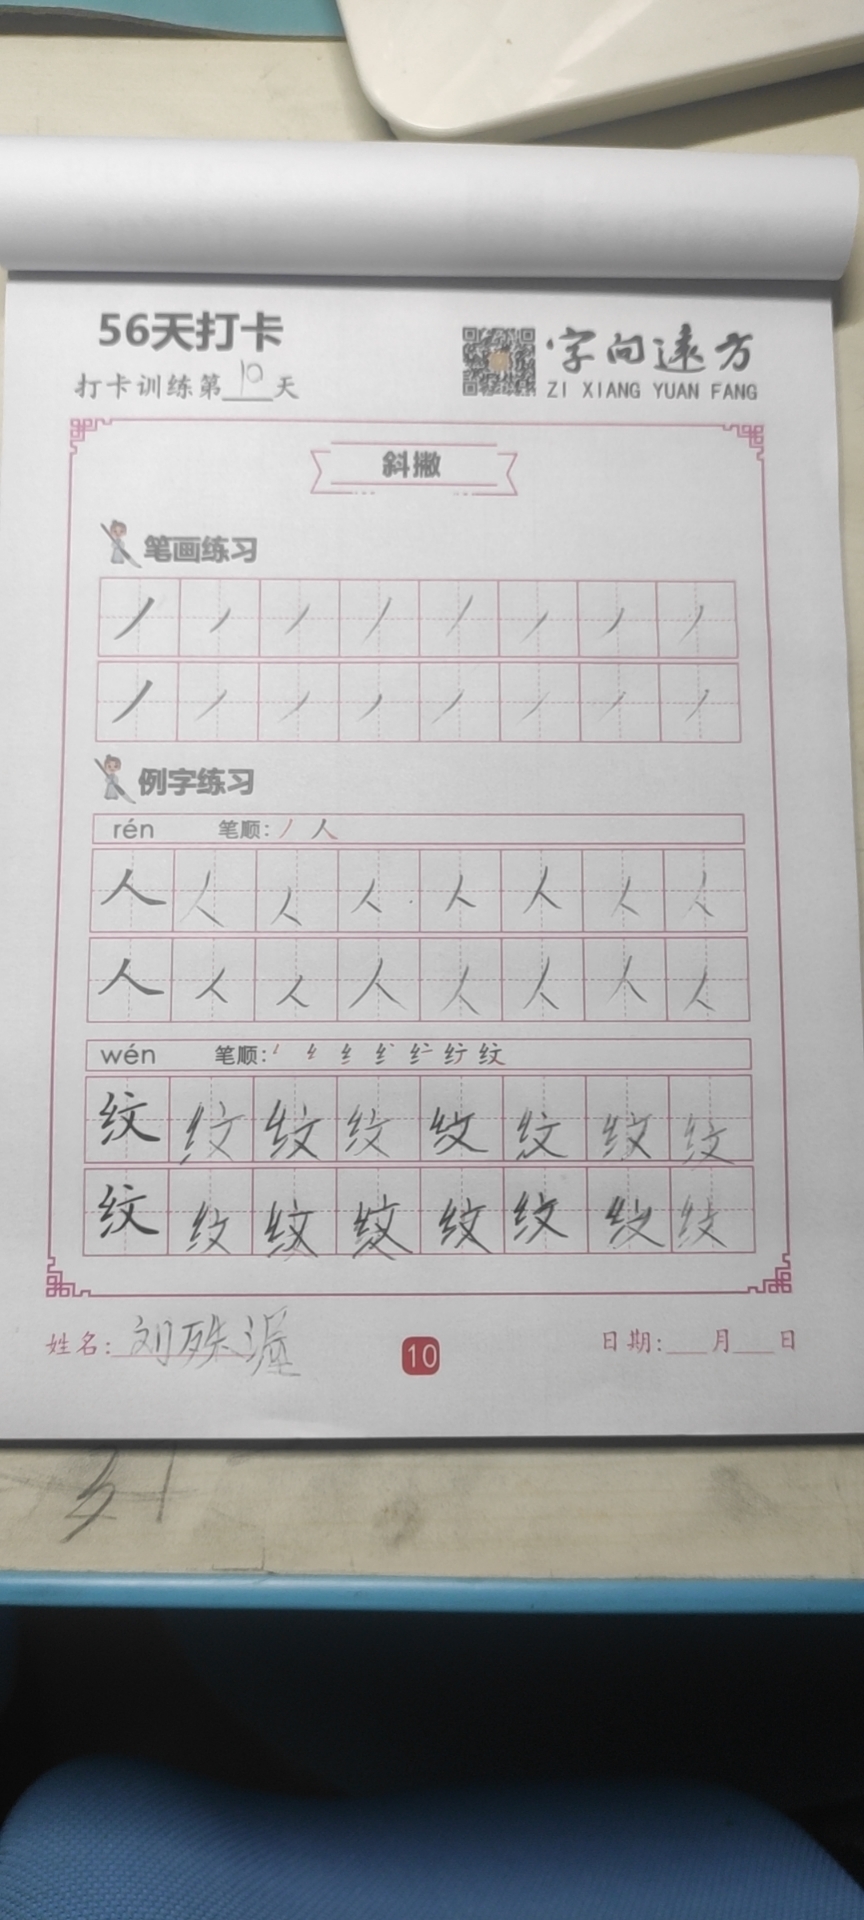 56天打卡
打卡训练第10天
字向远方
ZI XIANG YUAN FANG
斜撇
笔画练习
丿 丿 丿 丿 丿 丿 丿 丿
丿 丿 丿 丿 丿 丿 丿 丿
例字练习
rén 笔顺: 丿 人
人 人 人 人 人 人 人 人
人 人 人 人 人 人 人 人
wén 笔顺: 纹
纹 纹 纹 纹 纹 纹 纹 纹
纹 纹 纹 纹 纹 纹 纹 纹
姓名: 刘
10
日期: 月 日